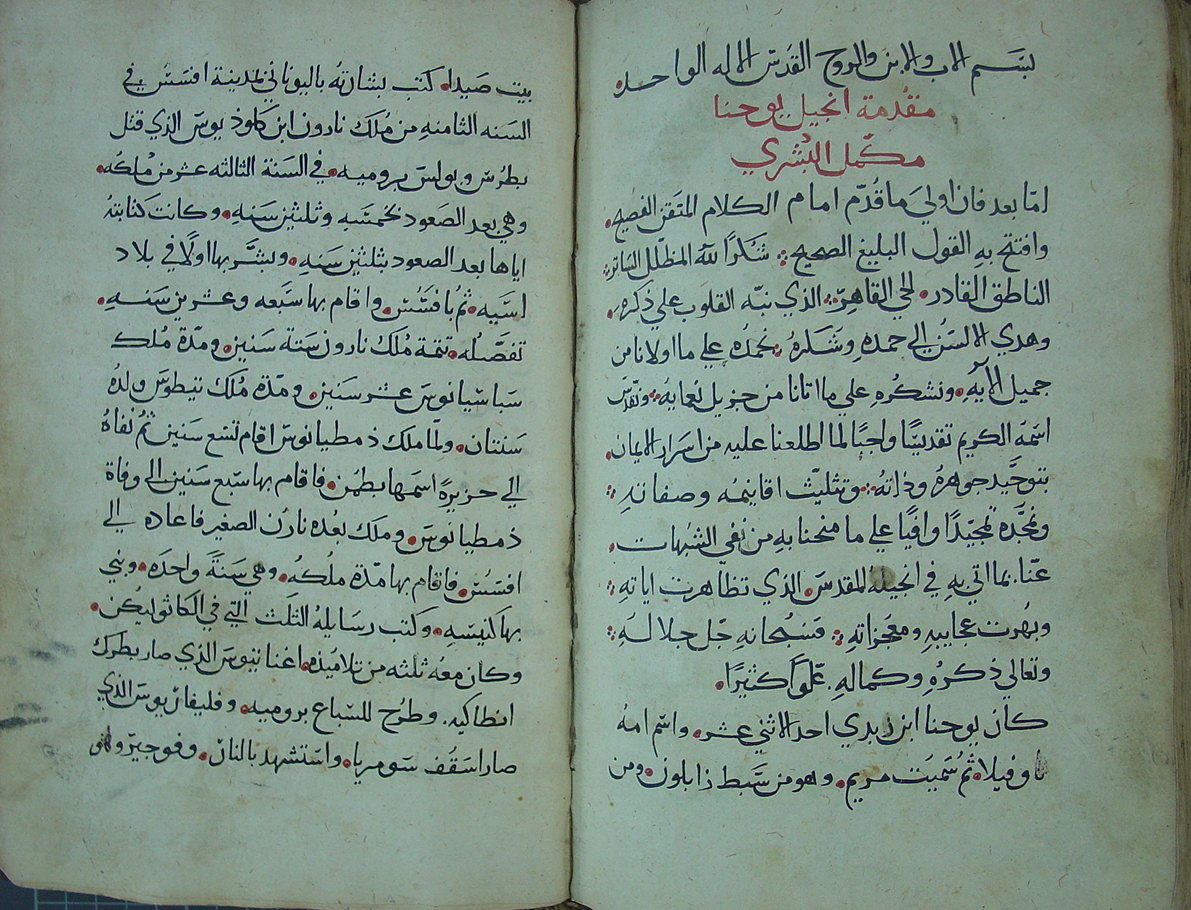 بسم الاب والابن والروح القدس الاله الواحد
مقدمة انجيل يوحنا
مكمل البشري
امّا بعد فان اولي ما قُدّم امام الكلام المتقن الفصيح
وافتتح به القول البليغ الصحيح شكرًا لله المظلل الساتر
الناطق القادر الحي القاهر الذي نبّه القلوب علي ذكره
وهدي الالسُن الي حمده وشكره نحمده علي ما اولانا من
جميل الآيه ونشكره علي ما اتانا من جزيل نعمايه ونقدّس
اسمه الكريم تقديسًا واجبًا لما اطلعنا عليه من اسرار الايمان
بتوحيد جوهره وذاته وتثليث اقانيمه وصفاته
ونمجّده تمجيدًا وافيًا علي ما منحنا به من نفي الشبهات
عنّا بما اتي به في انجيله المقدس الذي تظاهرت اياته
وبهرت عجايبه ومعجزاته فسبحانه جل جلاله
وتعالي ذكره وكماله علوًا كثيرًا
كان يوحنا ابن زبدي احد الاثني عشر واسم امه
ثم سُميت مريم وهو من سبط زابلون ومن
بيت صيدا كتب بشارته باليوناني لمدينة افسس في
السنه الثامنه من مُلك نارون ابن كلوذيوس الذي قتل
بطرس وبولس بروميه في السنة الثالثه عشر من مُلكه
وهي بعد الصعود بخمسه وثلثين سنه وكانت كتابته
اياها بعد الصعود بثلثين سنه وبشّر بها اولًا في بلاد
اسيه ثم بافسس واقام بها سبعه وعشرين سنه
تفصّله تتمة مُلك نارون ستة سنين ومدّة مُلك
سباسيانوس عشر سنين ومدّة مُلك تيطوس ولده
سنتان ولمّا ملك ذمطيانوس اقام تسع سنين ثم نفاه
الي جزيرة اسمها بطمن فاقام بها سبع سنين الي وفاة
ذمطيانوس وملك بعده نارُن الصغير فاعاده الي
افسس فاقام بها مدّة ملكه وهي سنةً واحده وبني
بها كنيسه وكتب رسايله الثلث التي في الكاثوليكن
وكان معه ثلثه من تلاميذه اغناتيوس الذي صار بطرك
انطاكيه وطرح للسباع بروميه وفليفاريوس الذي
صار اسقف سومريا واستشهد بالنار وفوجيرو